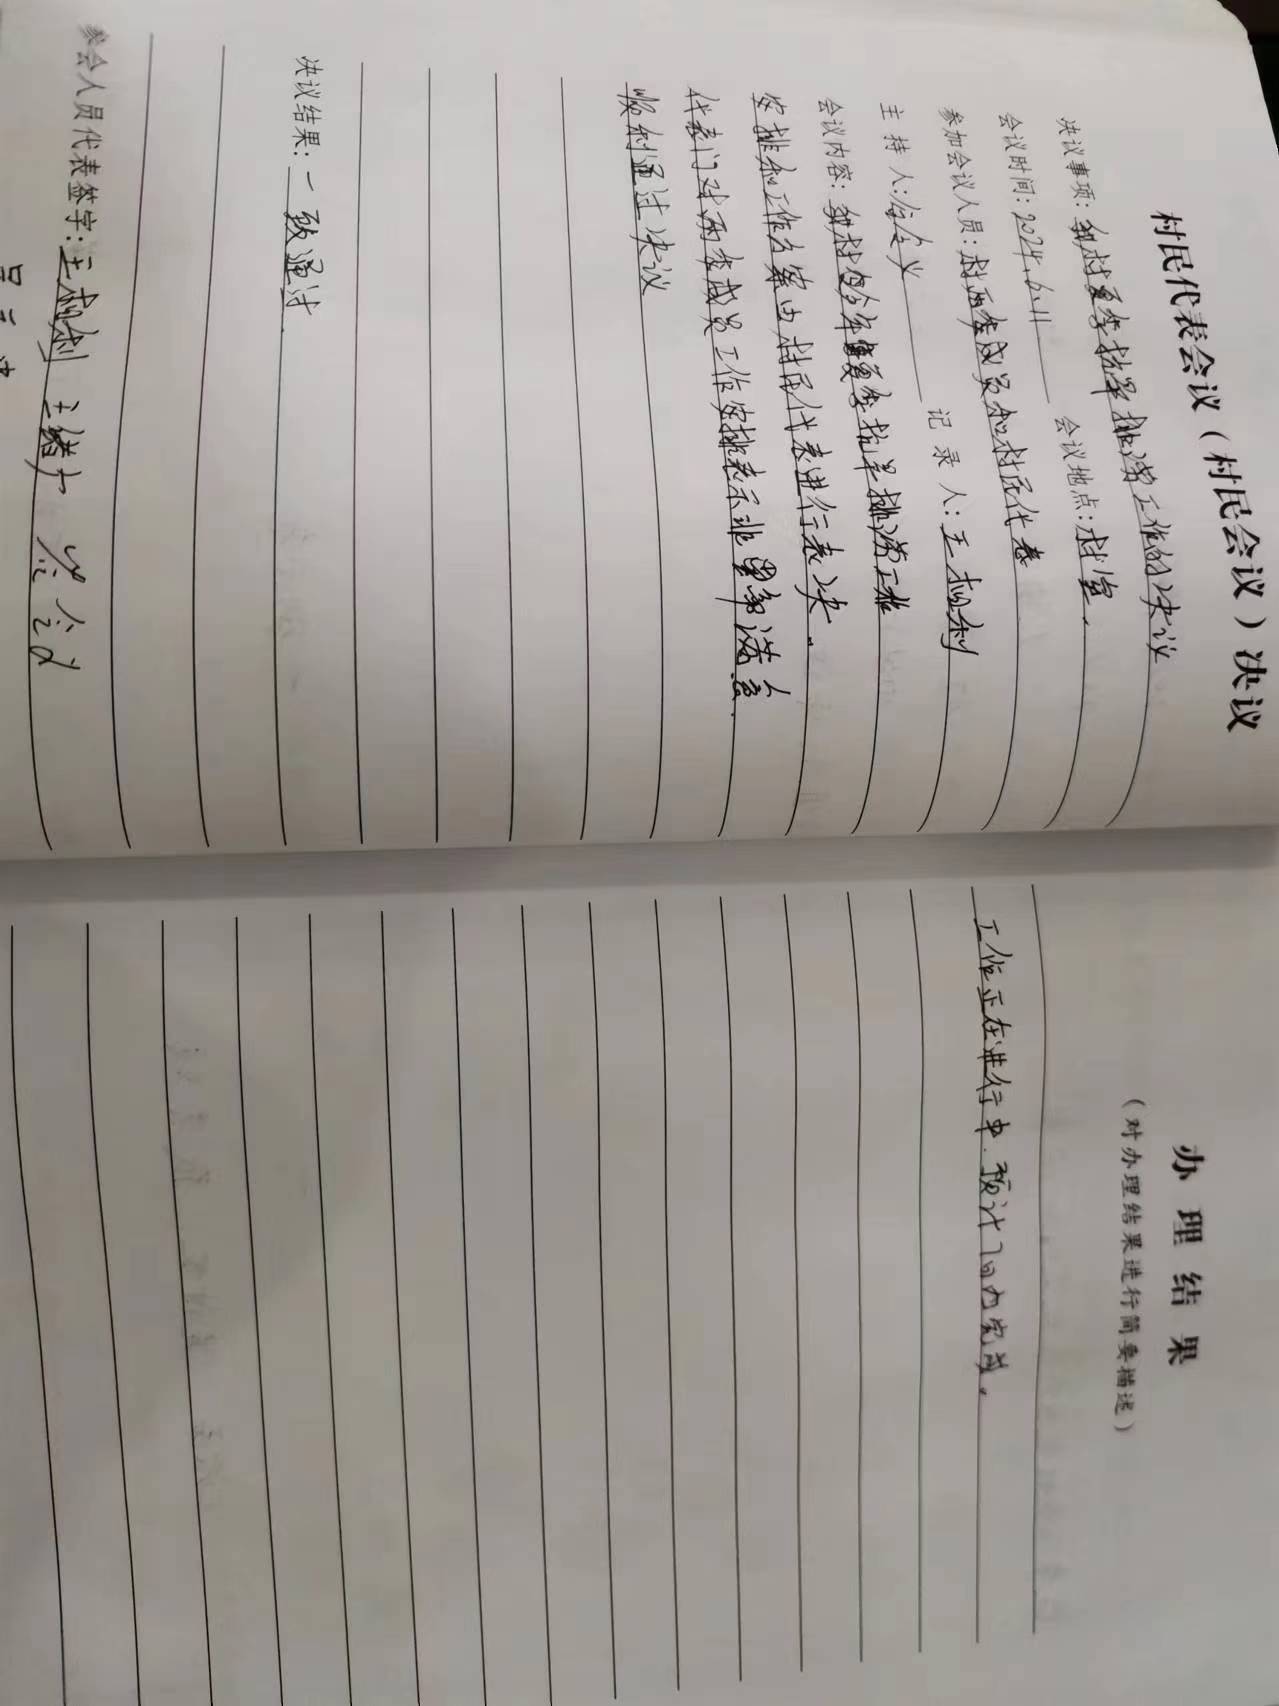 村民代表会议（村民会议）决议
决议事项：我村夏季抗旱排涝工作的决议
会议时间：2024.6.11 会议地点：村室.
参加会议人员：村两委成员和村民代表
主持人： 记录人：王
会议内容：我村的今年夏季抗旱排涝工作
安排和工作方案由村民代表进行表决.
代表们对两委成员工作安排表示非常满意.
顺利通过决议
决议结果：一致通过.
参会人员代表签字：王
办理结果
（对办理结果进行简要描述）
工作正在进行中.预计7日内完成.